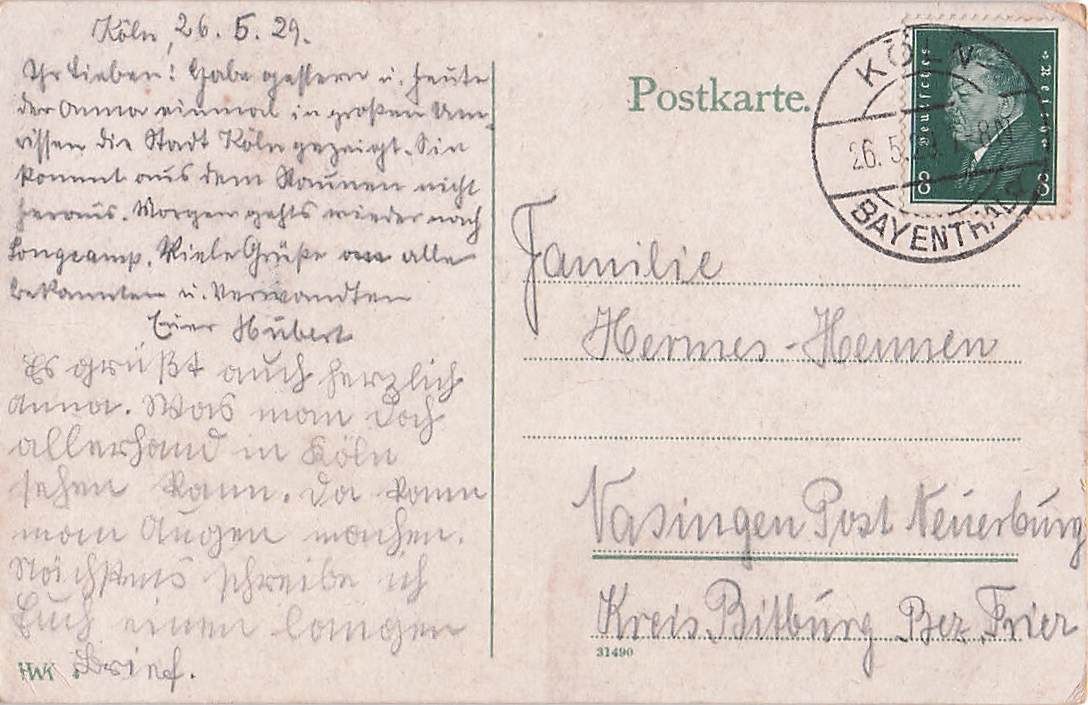 Köln, 26. 5. 29.
Ihr Lieben! Habe gestern u. heute
der Anna einmal in großen Um-
rissen die Stadt Köln gezeigt. Sie
kommt aus dem Staunen nicht
heraus. Morgen gehts wieder nach
Longcamp. Viele Grüße an alle
bekannten u. Verwandten
Euer Hubert
Es grüßt auch herzlich
Anna. Was man doch
allerhand in Köln
sehen kann. Da kann
man Augen machen.
Nächstens schreibe ich
Euch einen langen
Brief.
HWK
Postkarte.
KÖLN
26. 5. 29
8
BAYENTHAL
Deutsches Reich
8 8
Familie
Hermes-Hennen
Nasingen Post Neuerburg
Kreis Bitburg Bez. Trier
31490